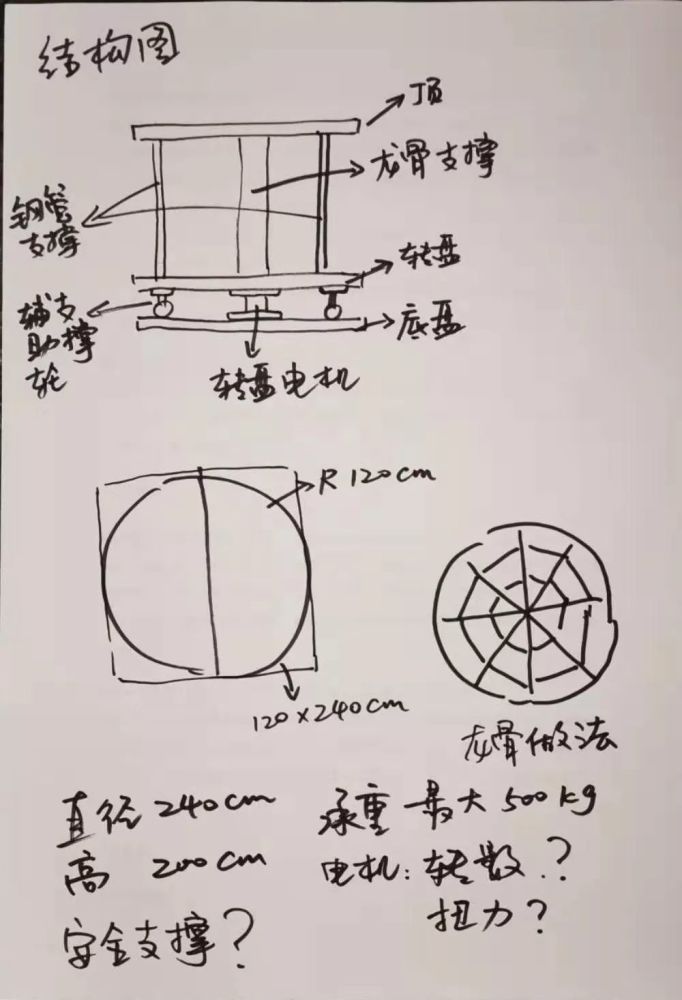 结构图
顶
龙骨支撑
钢管
支撑
转盘
辅支
助撑
轮
底盘
转盘电机
R 120cm
120×240cm
龙骨做法
直径 240cm
高 200cm
安全支撑?
承重 最大 500kg
电机: 转数.?
扭力?